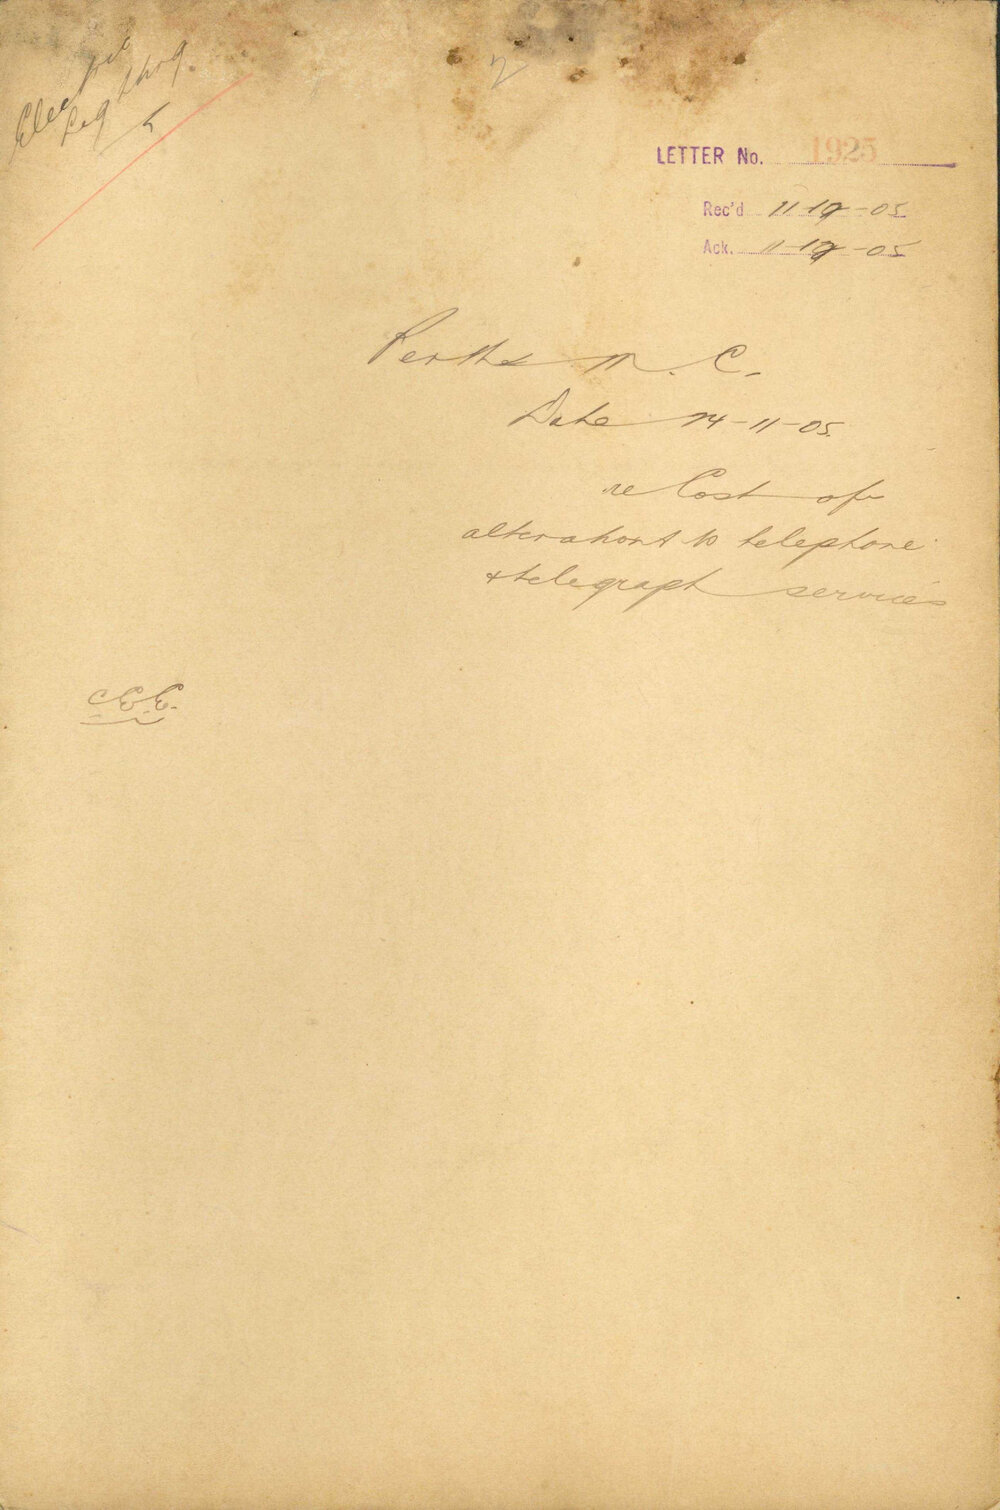 Electric
Ligthng
5
2
LETTER No. 1925
Rec'd 11-12-05
Ack. 11-12-05
Perth M. C.
Date 14-11-05
re Cost of
alterations to telephone
& telegraph services
C.E.E.